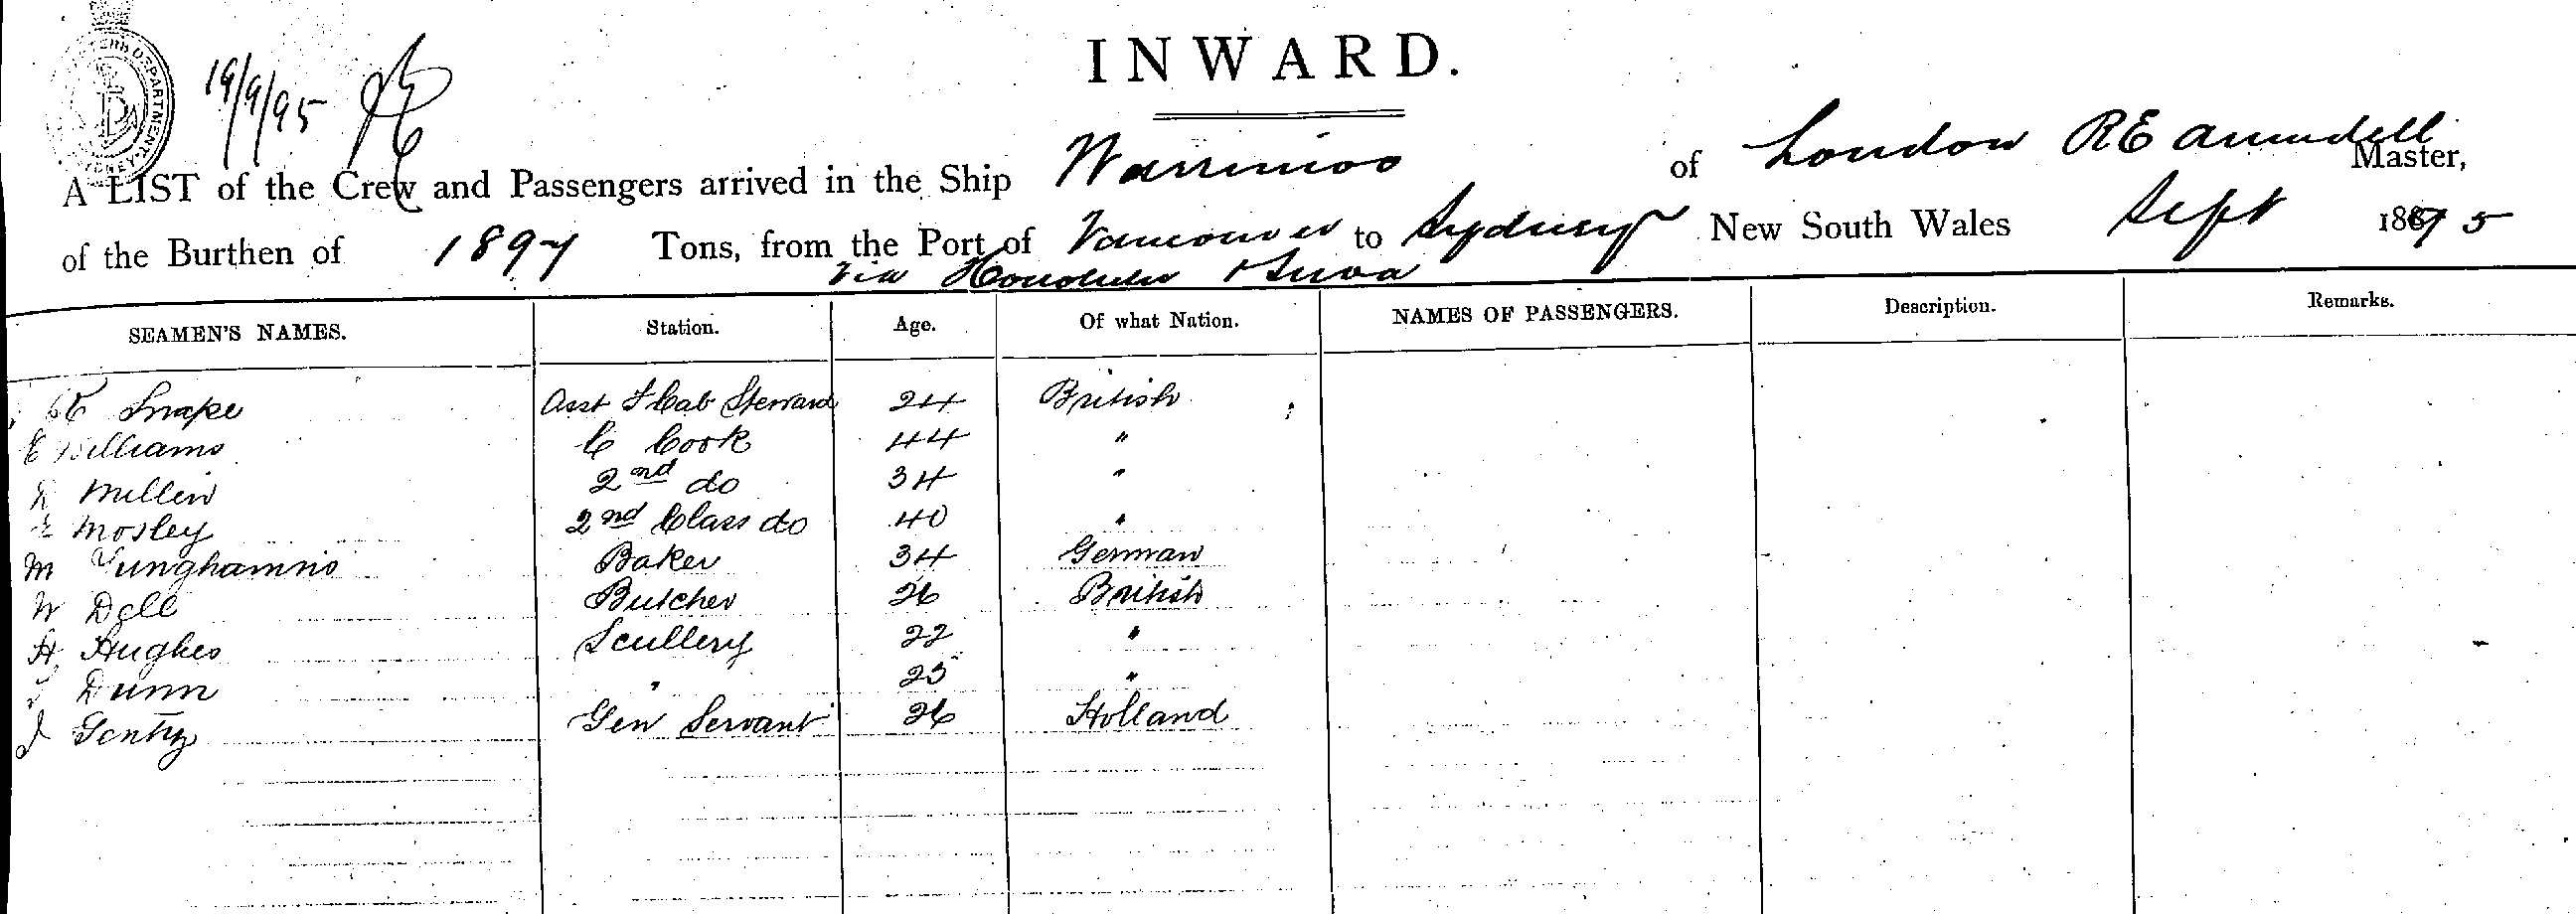 INWARD.
19/9/95
A LIST of the Crew and Passengers arrived in the Ship Warrimoo of London RE Arundell Master,
of the Burthen of 1897 Tons, from the Port of Vancouver to Sydney New South Wales Sept 1895
via Honolulu & Suva
SEAMEN'S NAMES. Station. Age. Of what Nation. NAMES OF PASSENGERS. Description. Remarks.
Snape Asst F Cab Steward 24 British
E Williams C Cook 44 "
Millin 2nd do 34 "
Mosley 2nd Class do 40 "
M Yunghamns Baker 34 German
W Dell Butcher 26 British
H Hughes Scullery 22 "
Dunn " 25 "
J Gentry Gen Servant 26 Holland